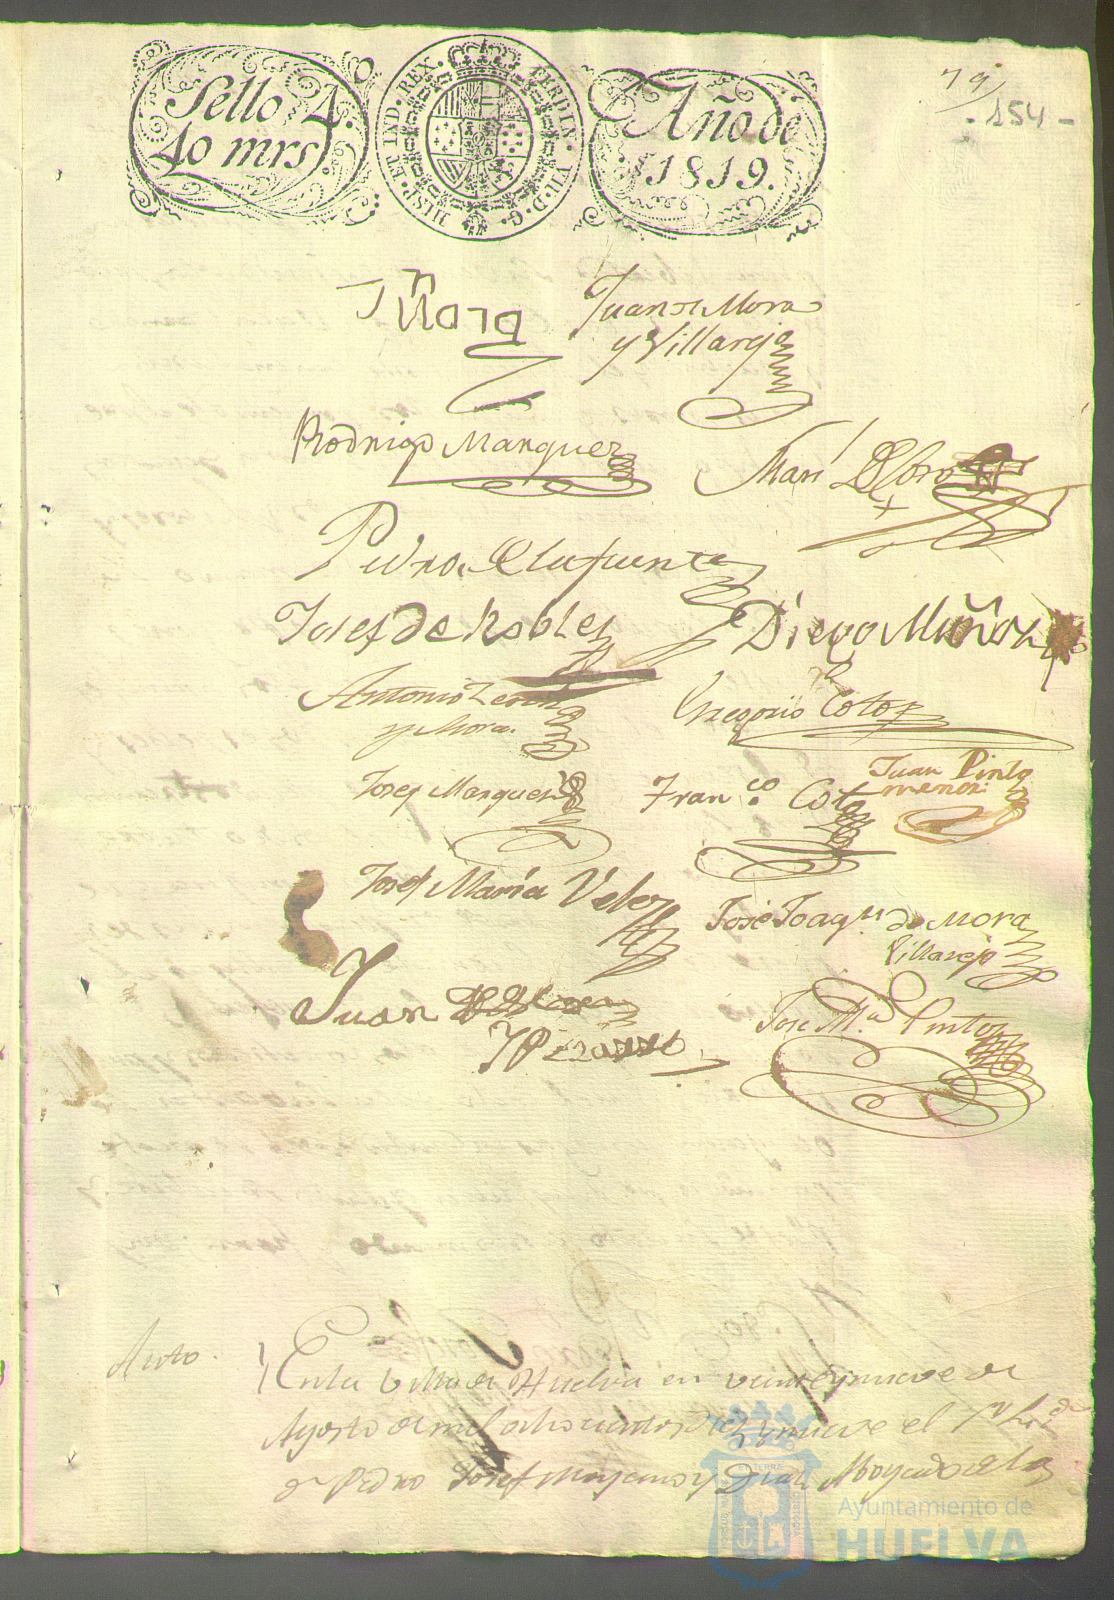 Sello 4.
40 mrs.
HISP. ET IND. REX. FERDIN. VII. D. G.
Año de
1819.
79
- 154 -
Juan de Mora
y Villarejo
Rodrigo Marquez
Pedro de la fuente
Josef de Robles
Diego Muñoz
Antonio
y Mora.
Gregorio Coto
Josef Marquez
Fran.co Coto
Juan Pinto
menor
Josef María Velez
José Joaq.n de Mora
Villarejo
Juan
José M.a Pintos
Auto.
En la Villa de Huelva en veinte y nueve de
Agosto de mil ochocientos diez y nueve el
Pedro Josef Moyano y Diaz Abogado de los
Ayuntamiento de
HUELVA